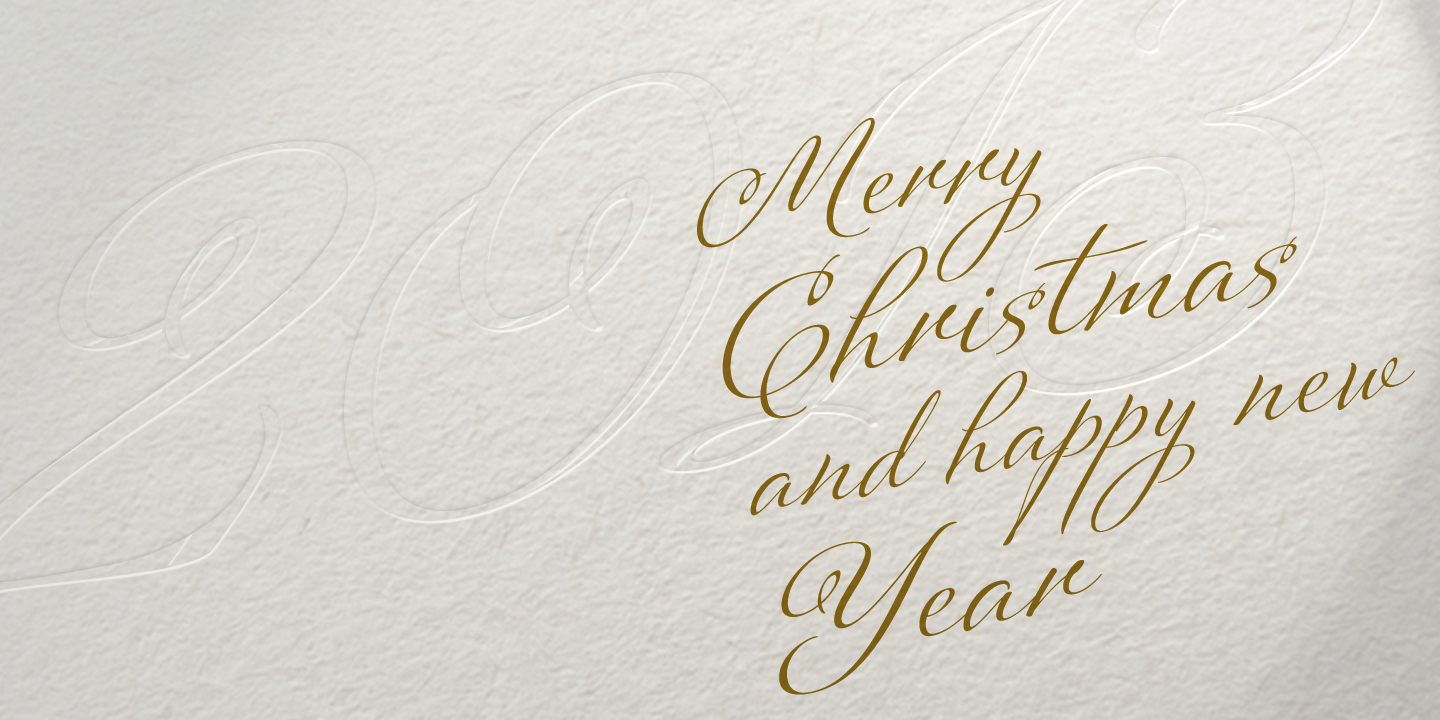 2013
Merry
Christmas
and happy new
Year